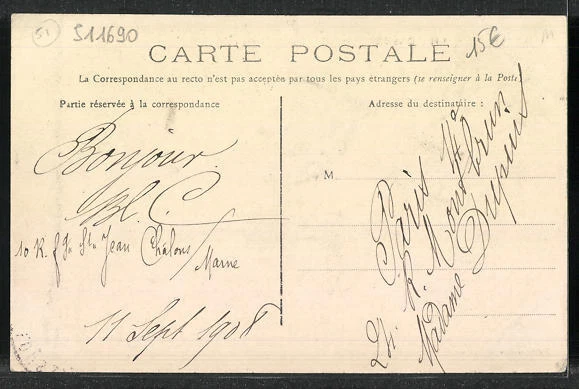 51
S11690
15€
CARTE POSTALE
La Correspondance au recto n'est pas acceptée par tous les pays étrangers (se renseigner à la Poste)
Partie réservée à la correspondance
Adresse du destinataire :
Bonjour.
C.
10 R. fg St Jean Châlons/Marne
11 Sept 1908
M
Madame Dupuis
R. Montbrun
Paris